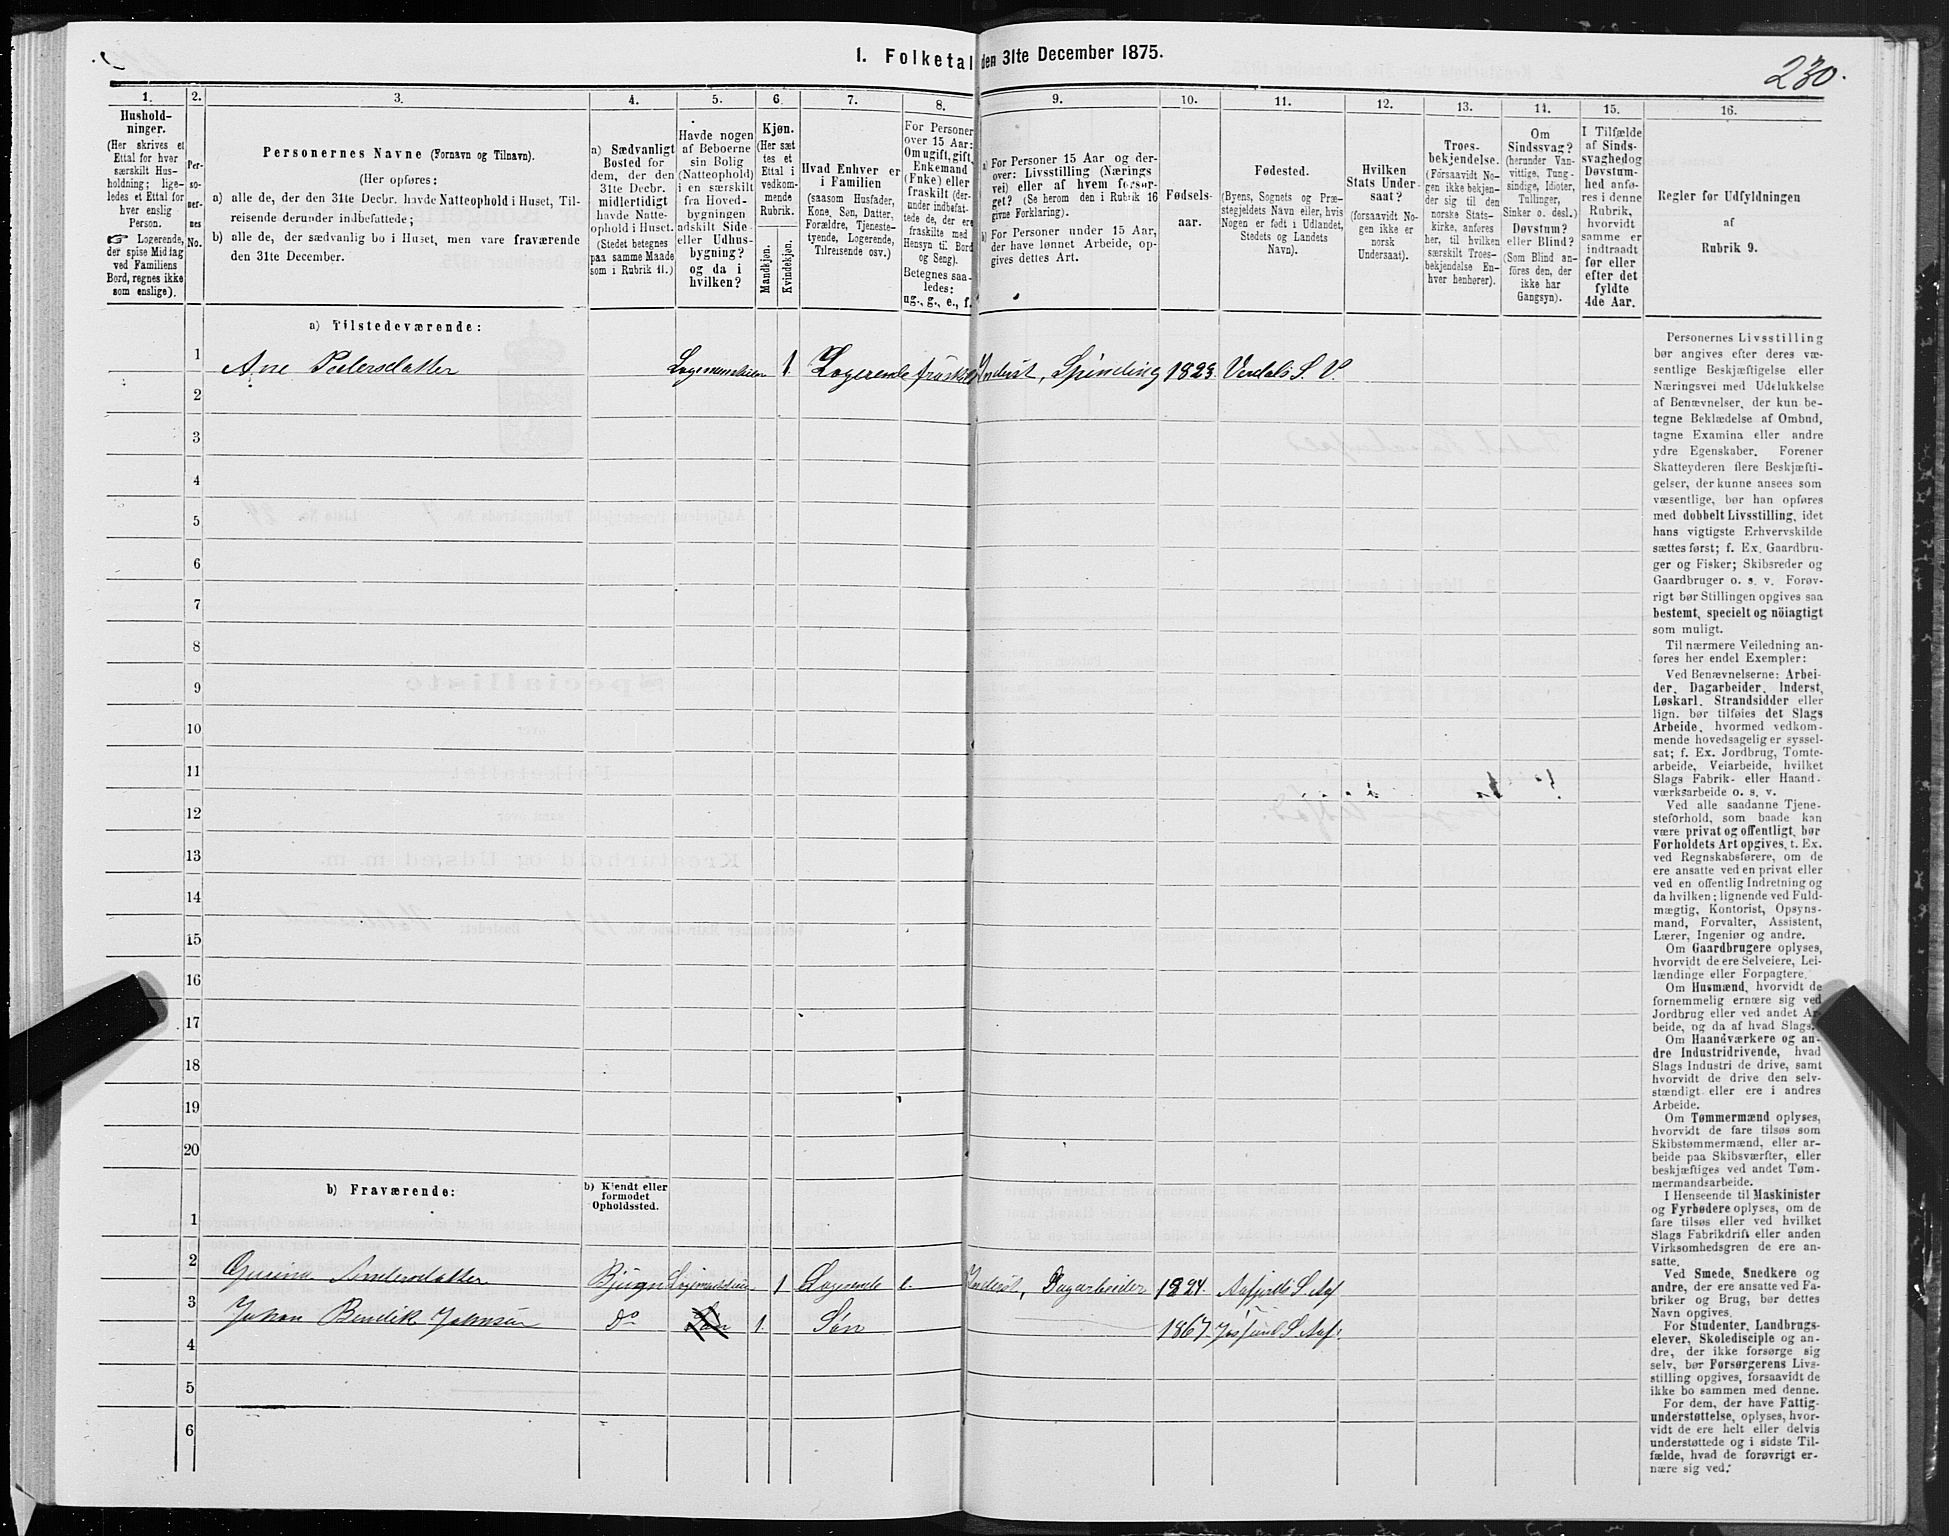 1. Folketal den 31te December 1875.
230.
1.
2.
3.
4.
5.
6.
7.
8.
9.
10.
11.
12.
13.
14.
15.
16.
Hushold-
ninger.
(Her skrives et
Ettal for hver
særskilt Hus-
holdning; lige-
ledes et Ettal for
hver enslig
Person.
☞ Logerende,
der spise Middag
ved Familiens
Bord, regnes ikke
som enslige).
Per-
so-
ner-
nes
No.
Personernes Navne (Fornavn og Tilnavn).
(Her opføres:
a) alle de, der den 31te Decbr. havde Natteophold i Huset, Til-
reisende derunder indbefattede;
b) alle de, der sædvanlig bo i Huset, men vare fraværende
den 31te December.
a) Sædvanligt
Bosted for
dem, der den
31te Decbr.
midlertidigt
havde Natte-
ophold i Huset.
(Stedet betegnes
paa samme Maade
som i Rubrik 11.)
Havde nogen
af Beboerne
sin Bolig
(Natteophold)
i en særskilt
fra Hoved-
bygningen
adskilt Side-
eller Udhus-
bygning?
og da i
hvilken?
Kjøn.
(Her sæt-
tes et
Ettal i
vedkom-
mende
Rubrik.
Mandkjøn.
Kvindekjøn.
Hvad Enhver er
i Familien
(saasom Husfader,
Kone, Søn, Datter,
Forældre, Tjeneste-
tyende, Logerende,
Tilreisende osv.)
For Personer
over 15 Aar:
Om ugift, gift,
Enkemand
(Enke) eller
fraskilt (d er-
under indbefat-
tede de, der ere
fraskilte med
Hensyn til Bord
og Seng).
Betegnes saa-
ledes:
ug., g., e., f.
a) For Personer 15 Aar og der-
over: Livsstilling (Nærings-
vei) eller af hvem forsør-
get? (Se herom den i Rubrik 16
givne Forklaring).
b) For Personer under 15 Aar,
der have lønnet Arbeide, op-
gives dettes Art.
Fødsels-
aar.
Fødested.
(Byens, Sognets og Præ-
stegjeldets Navn eller, hvis
Nogen er født i Udlandet,
Stedets og Landets
Navn).
Hvilken
Stats Under-
saat?
(forsaavidt No-
gen ikke er
norsk
Undersaat).
Troes-
bekjendelse.
(Forsaavidt No-
gen ikke bekjen-
der sig til den
norske Stats-
kirke, anføres
her, til hvilken
særskilt Troes-
bekjendelse En-
hver henhører).
Om
Sindssvag?
(herunder Van-
vittige, Tung-
sindige, Idioter,
Tullinger,
Sinker o. desl.)
Døvstum?
eller Blind?
(Som Blind an-
føres den, der
ikke har
Gangsyn).
I Tilfælde
af Sinds-
svaghed og
Døvstum-
hed anfø-
res i denne
Rubrik,
hvorvidt
samme er
indtraadt
før eller
efter det
fyldte
4de Aar.
Regler for Udfyldningen
af
Rubrik 9.
a) Tilstedeværende:
1 Ane Pedersdatter 1 Logerende fraskilt Inderst, Spinding 1823. Verdals S. V.
2
3
4
5
6
7
8
9
10
11
12
13
14
15
16
17
18
19
20
b) Fraværende:
b) Kjendt eller
formodet
Opholdssted.
1
2 Andersdatter Bjugn 1 Logerende e. Inderst, Dagarbeider 1824. Aafjords S. Aaf
3 Johan Bendik Johnsen do Søn 1. Søn 1867. Jøssund S. Aaf.
4
5
6
Personernes Livsstilling
bør angives efter deres væ-
sentlige Beskjæftigelse eller
Næringsvei med Udelukkelse
af Benævnelser, der kun be-
tegne Beklædelse af Ombud,
tagne Examina eller andre
ydre Egenskaber. Forener
Skatteyderen flere Beskjæfti-
gelser, der kunne ansees som
væsentlige, bør han opføres
med dobbelt Livsstilling, idet
hans vigtigste Erhvervskilde
sættes først; f. Ex. Gaardbru-
ger og Fisker; Skibsreder og
Gaardbruger o. s. v. Forøv-
rigt bør Stillingen opgives saa
bestemt, specielt og nöiagtigt
som muligt.
Til nærmere Veiledning an-
føres her endel Exempler:
Ved Benævnelserne: Arbei-
der, Dagarbeider, Inderst,
Løskarl, Strandsidder eller
lign. bør tilføies det Slags
Arbeide, hvormed vedkom-
mende hovedsagelig er syssel-
sat; f. Ex. Jordbrug, Tomte-
arbeide, Veiarbeide, hvilket
Slags Fabrik- eller Haand-
værksarbeide o. s. v.
Ved alle saadanne Tjene-
steforhold, som baade kan
være privat og offentligt, bør
Forholdets Art opgives, t. Ex.
ved Regnskabsførere, om de
ere ansatte ved en privat eller
ved en offentlig Indretning og
da hvilken; lignende ved Fuld-
mægtig, Kontorist, Opsyns-
mand, Forvalter, Assistent,
Lærer, Ingeniør og andre.
Om Gaardbrugere oplyses,
hvorvidt de ere Selveiere, Lei-
lændinge eller Forpagtere.
Om Husmænd, hvorvidt de
fornemmelig ernære sig ved
Jordbrug eller ved andet Ar-
beide, og da af hvad Slags.
Om Haandværkere og an-
dre Industridrivende, hvad
Slags Industri de drive, samt
hvorvidt de drive den selv-
stændigt eller ere i andres
Arbeide.
Om Tømmermænd oplyses,
hvorvidt de fare tilsøs som
Skibstømmermænd, eller ar-
beide paa Skibsværfter, eller
beskjæftiges ved andet Tøm-
mermandsarbeide.
I Henseende til Maskinister
og Fyrbødere oplyses, om de
fare tilsøs eller ved hvilket
Slags Fabrikdrift eller anden
Virksomhedsgren de ere an-
satte.
Ved Smede, Snedkere og
andre, der ere ansatte ved Fa-
briker og Brug, bør dettes
Navn opgives.
For Studenter, Landbrugs-
elever, Skoledisciple og an-
dre, der ikke forsørge sig
selv, bør Forsørgerens Livs-
stilling opgives, forsaavidt de
ikke bo sammen med denne.
For dem, der have Fattig-
understøttelse, oplyses, hvor-
vidt de ere helt eller delvis
understøttede og i sidste Til-
fælde, hvad de forøvrigt er-
nære sig ved.